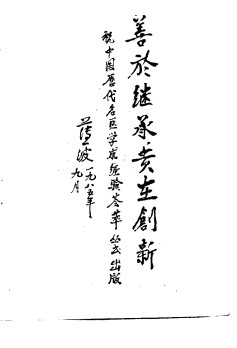 善於继承贵在創新
祝中国历代名医学术经验荟萃丛书出版
薄一波
一九八五年
九月